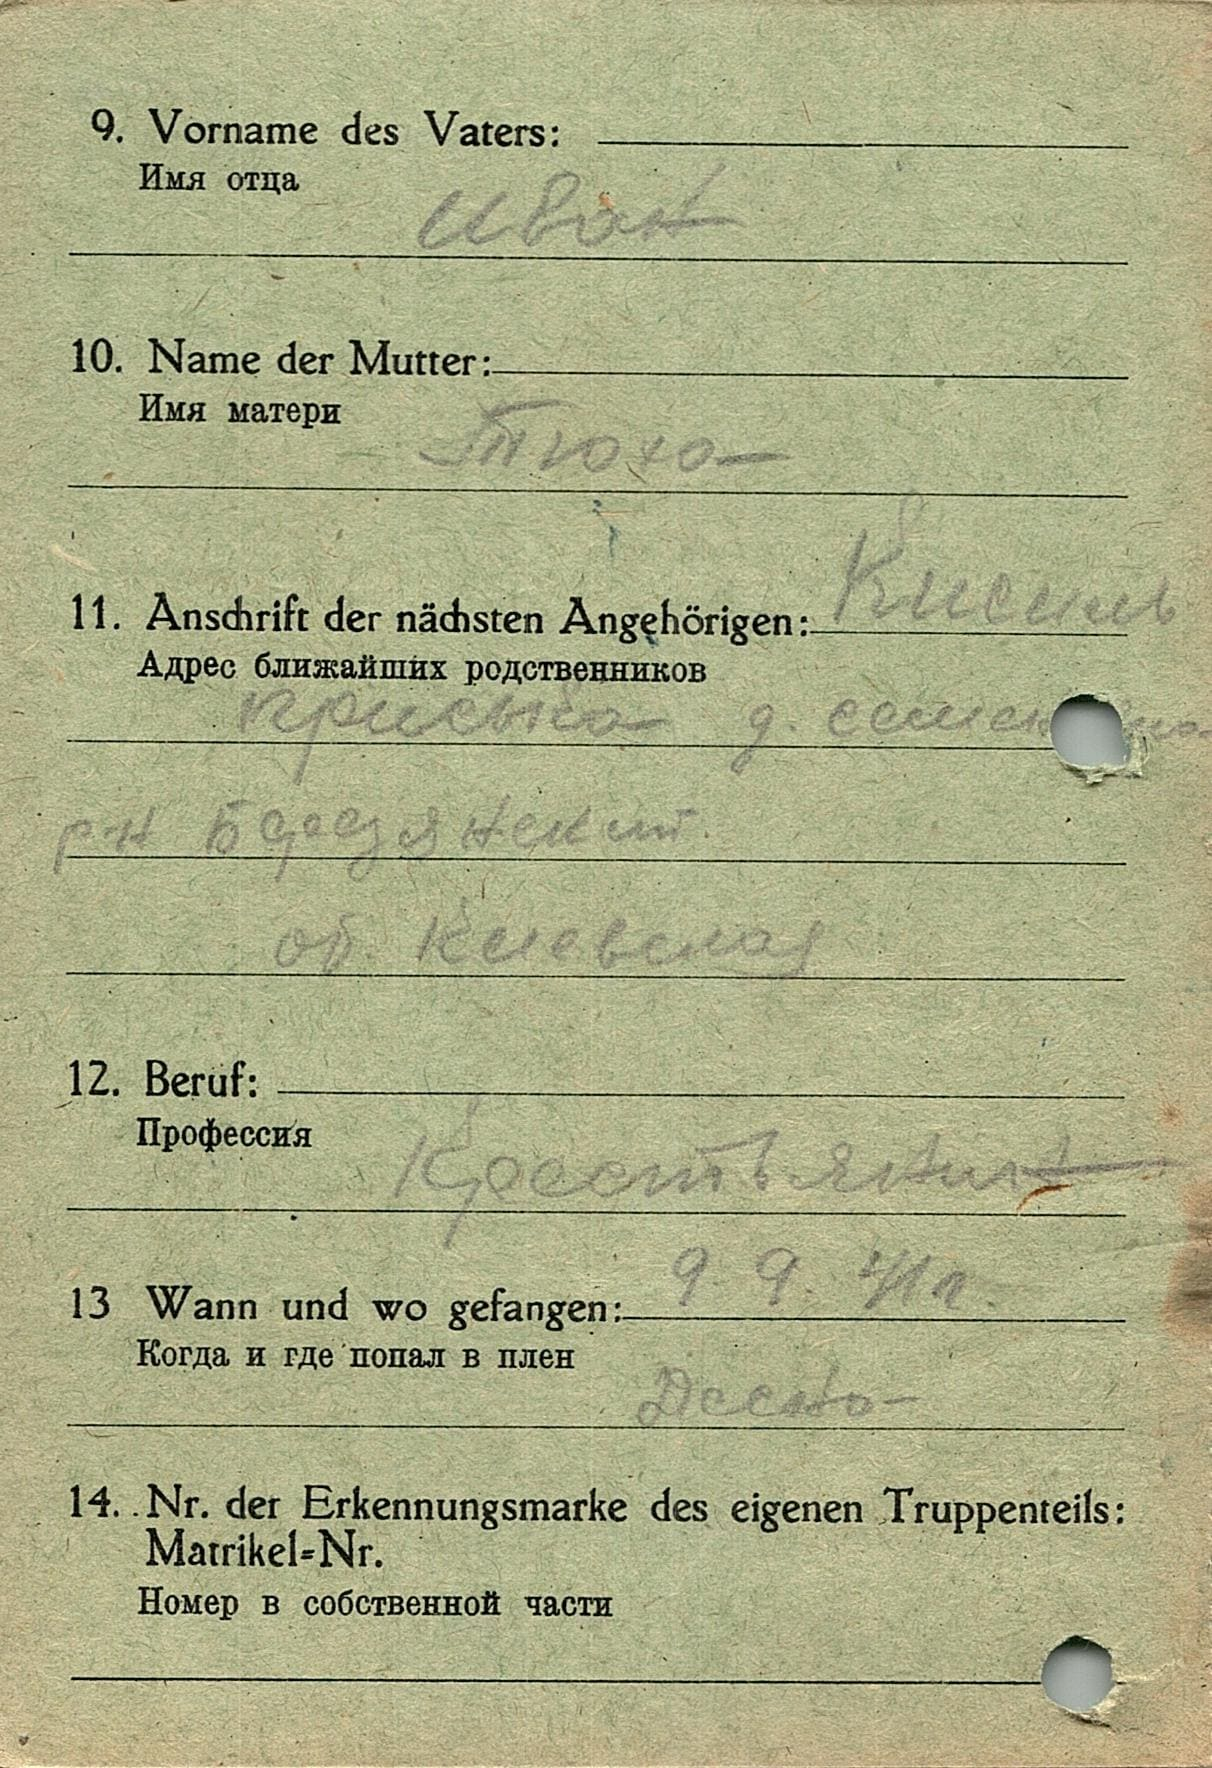 9. Vorname des Vaters:
Имя отца
Иван
10. Name der Mutter:
Имя матери
Тюхо
Кисель
11. Anschrift der nächsten Angehörigen:
Адрес ближайших родственников
Приська д. семен
р-н Бородянский
об. Киевская
12. Beruf:
Профессия
Крестьянин
9. 9. 41 г.
13 Wann und wo gefangen:
Когда и где попал в плен
14. Nr. der Erkennungsmarke des eigenen Truppenteils:
Matrikel=Nr.
Номер в собственной части